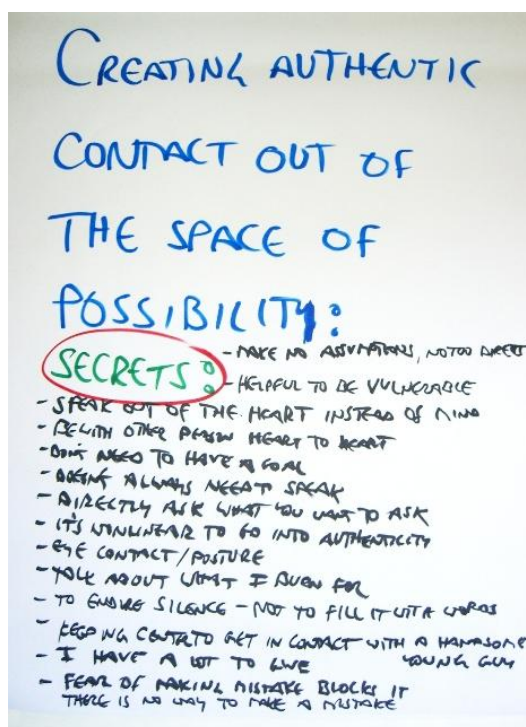 CREATING AUTHENTIC
CONTACT OUT OF
THE SPACE OF
POSSIBILITY:
SECRETS: - MAKE NO ASSUMPTIONS, NO TOO DIRECT
- HELPFUL TO BE VULNERABLE
- SPEAK OUT OF THE HEART INSTEAD OF MIND
- BE WITH OTHER PERSON HEART TO HEART
- DON'T NEED TO HAVE A GOAL
- DOESN'T ALWAYS NEED TO SPEAK
- DIRECTLY ASK WHAT YOU WANT TO ASK
- IT'S NONLINEAR TO GO INTO AUTHENTICITY
- EYE CONTACT/POSTURE
- TALK ABOUT WHAT I BURN FOR
- TO ENDURE SILENCE - NOT TO FILL IT WITH WORDS
- KEEPING TO GET IN CONTACT WITH A HANDSOME
YOUNG GUY
- I HAVE A LOT TO GIVE
- FEAR OF MAKING MISTAKE BLOCKS IT
THERE IS NO WAY TO MAKE A MISTAKE